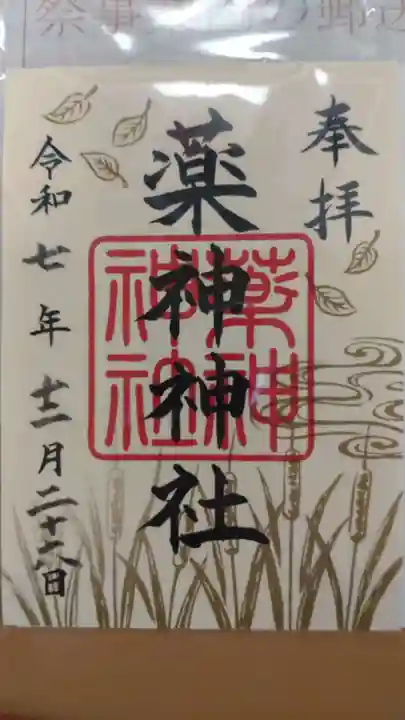 奉拝
薬神神社
薬神
神社
令和七年十二月二十六日